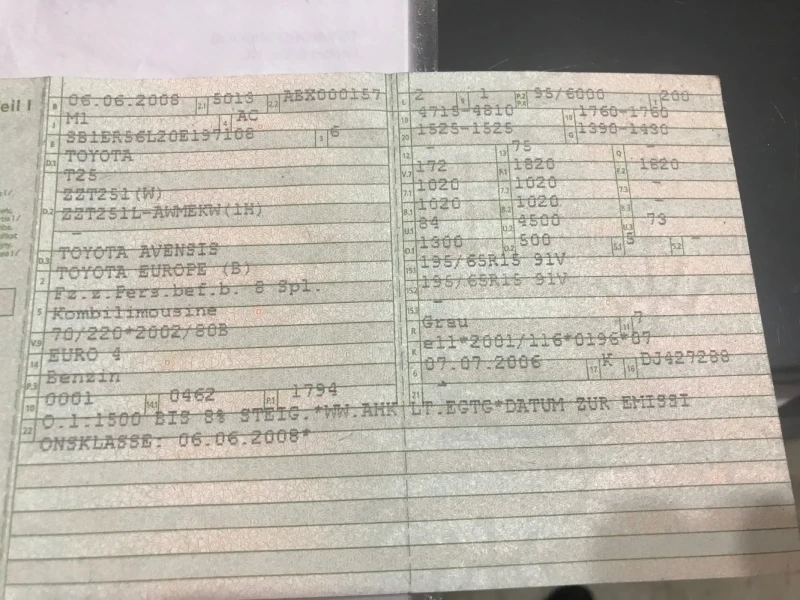 eil I
B 06.06.2008 2.1 5013 2.2 ABX000157
J M1 4 AC
E SB1ER56L20E197108 3 6
D.1 TOYOTA
T25
D.2 ZZT251(W)
ZZT251L-AWMEKW(1H)
-
D.3 TOYOTA AVENSIS
2 TOYOTA EUROPE (B)
5 Fz.z.Pers.bef.b. 8 Spl.
Kombilimousine
V.9 70/220*2002/80B
14 EURO 4
P.3 Benzin
10 0001 14.1 0462 P.1 1794
L 2 9 1 P.2 P.4 95/6000 T 200
18 4715-4810 19 1760-1760
20 1525-1525 G 1390-1430
12 - 13 75 Q -
V.7 172 F.1 1820 F.2 1820
7.1 1020 7.2 1020 7.3 -
8.1 1020 8.2 1020 8.3 -
U.1 84 U.2 4500 U.3 73
O.1 1300 O.2 500 S.1 5 S.2 -
15.1 195/65R15 91V
15.2 195/65R15 91V
15.3 -
R Grau 11 7
K e11*2001/116*0196*07
6 07.07.2006 17 K 16 DJ427288
21 -
22 O.1:1500 BIS 8% STEIG.*WW.AHK LT.EGTG*DATUM ZUR EMISSI
ONSKLASSE: 06.06.2008*